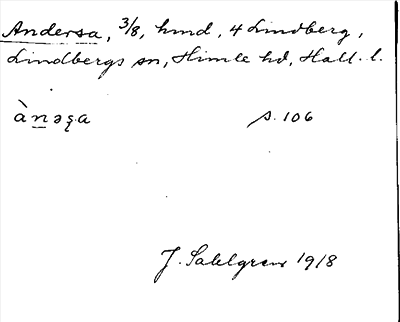 Andersa, 3/8, hmd, 4 Lindberg,
Lindbergs sn, Himle hd, Hall. l.
ànəʂa s. 106
J. Sahlgren 1918